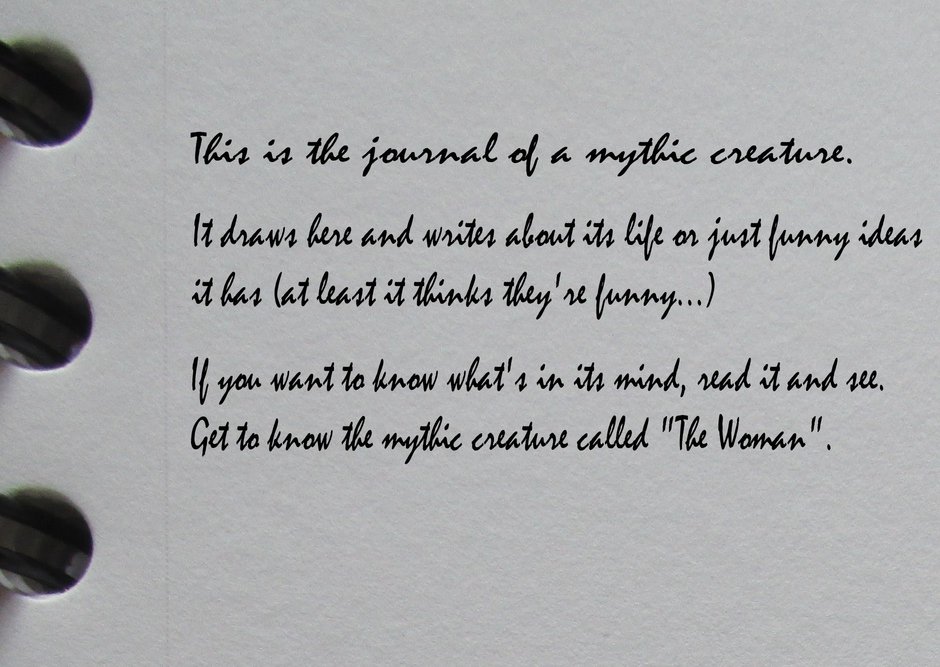 This is the journal of a mythic creature.
It draws here and writes about its life or just funny ideas
it has (at least it thinks they're funny...)
If you want to know what's in its mind, read it and see.
Get to know the mythic creature called "The Woman".